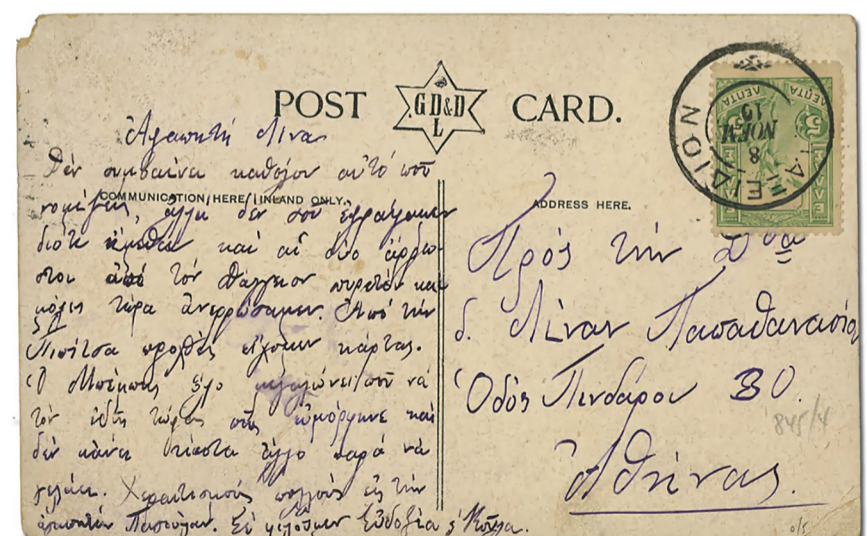 POST CARD.
G.D.&D.
L
COMMUNICATION HERE INLAND ONLY.
ADDRESS HERE.
Ἀγαπητή Λίνα
Δέν συμβαίνει καθόλου αὐτό πού
νομίζεις, ἀλλά δέν σοῦ ἐγράψαμεν
διότι εἴμεθα καί αἱ δύο ἄρρω-
στοι ἀπό τόν δάγγειον πυρετόν καί
μόλις τώρα ἀνερρώσαμεν. Ἀπό τήν
Πιπίτσα προχθές εἴχομεν κάρτας.
Ὁ Μπέμπης ὅλο μεγαλώνει ποῦ νά
τόν ἰδῇς τώρα πῶς ὠμόρφηνε καί
δέν κάνει τίποτα ἄλλο παρά νά
γελάει. Χαιρετισμούς πολλούς εἰς τήν
Σέ φιλοῦμεν Εὐδοξία
Πρός τήν Δδα
δ. Λίναν Παπαθανασίου
Ὁδός Πινδάρου 30.
Ἀθήνας.
845/4
ΓΑΛΑΞΕΙΔΙΟΝ
8
ΝΟΕΜ
ΛΕΠΤΑ
5